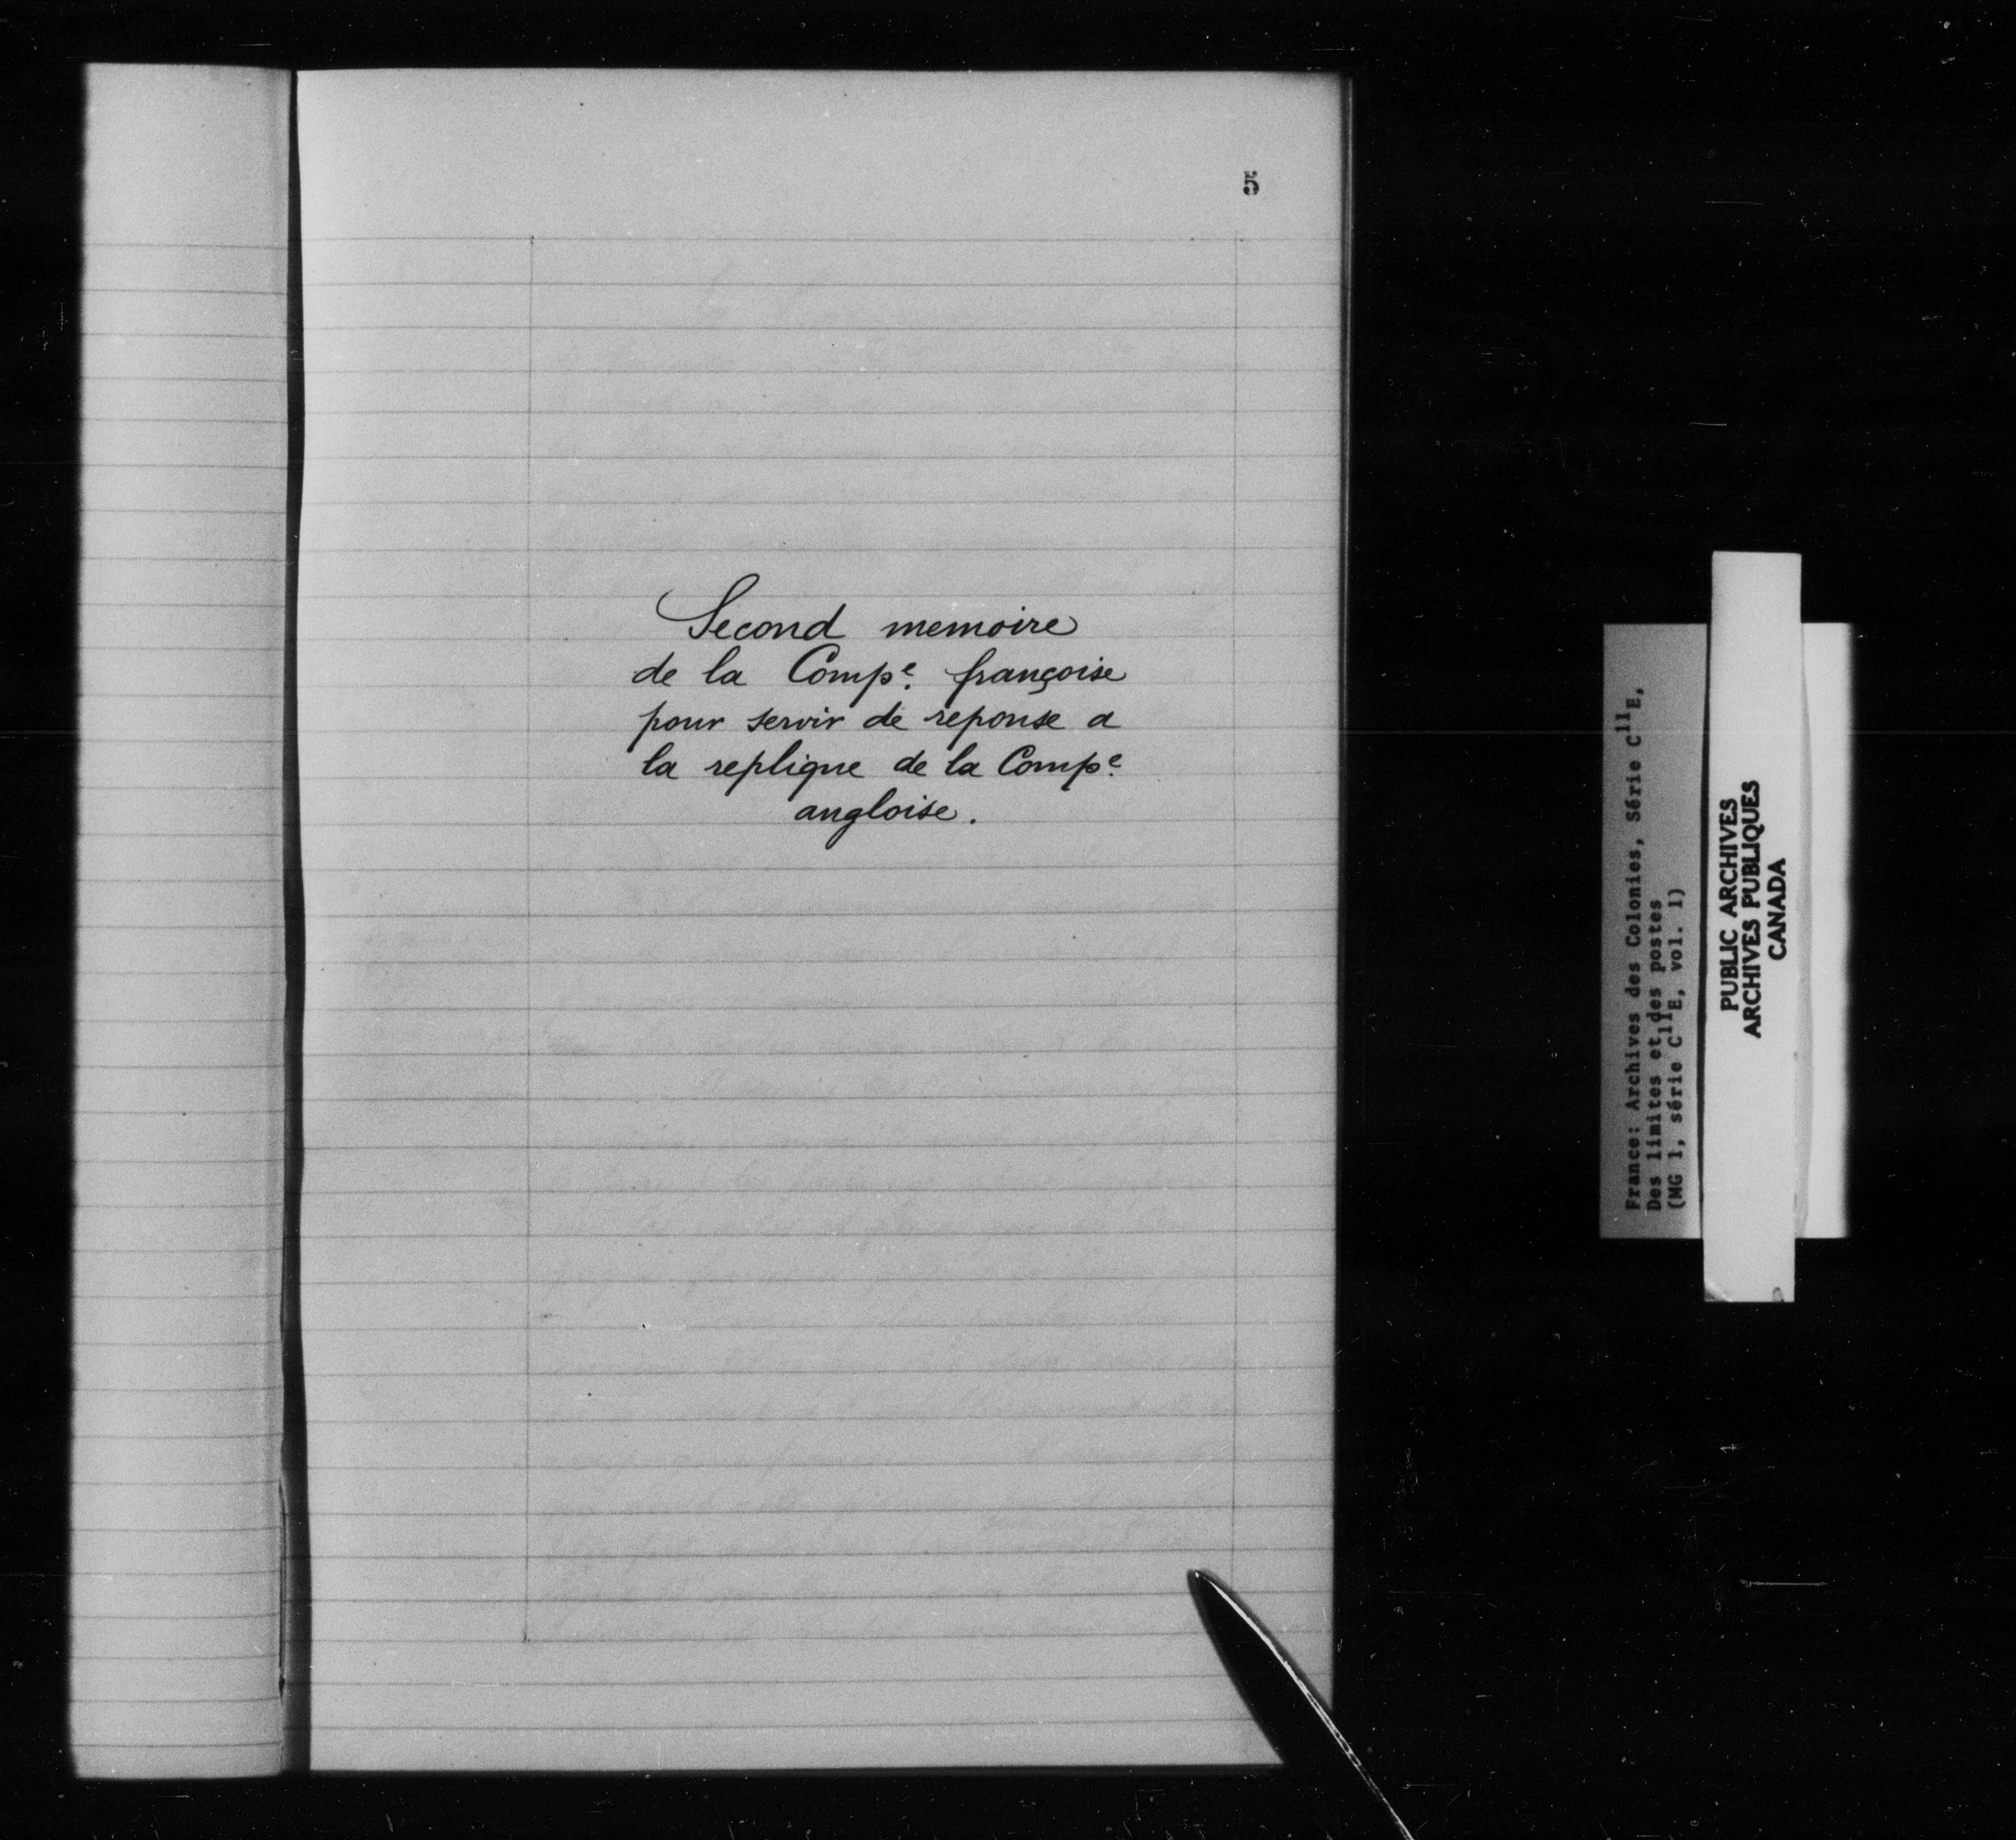 5
Second memoire
de la Compe. françoise
pour servir de reponse a
la replique de la Compe.
angloise.
France: Archives des Colonies, Série C11E,
Des limites et des postes
(MG 1, série C11E, vol. 1)
PUBLIC ARCHIVES
ARCHIVES PUBLIQUES
CANADA